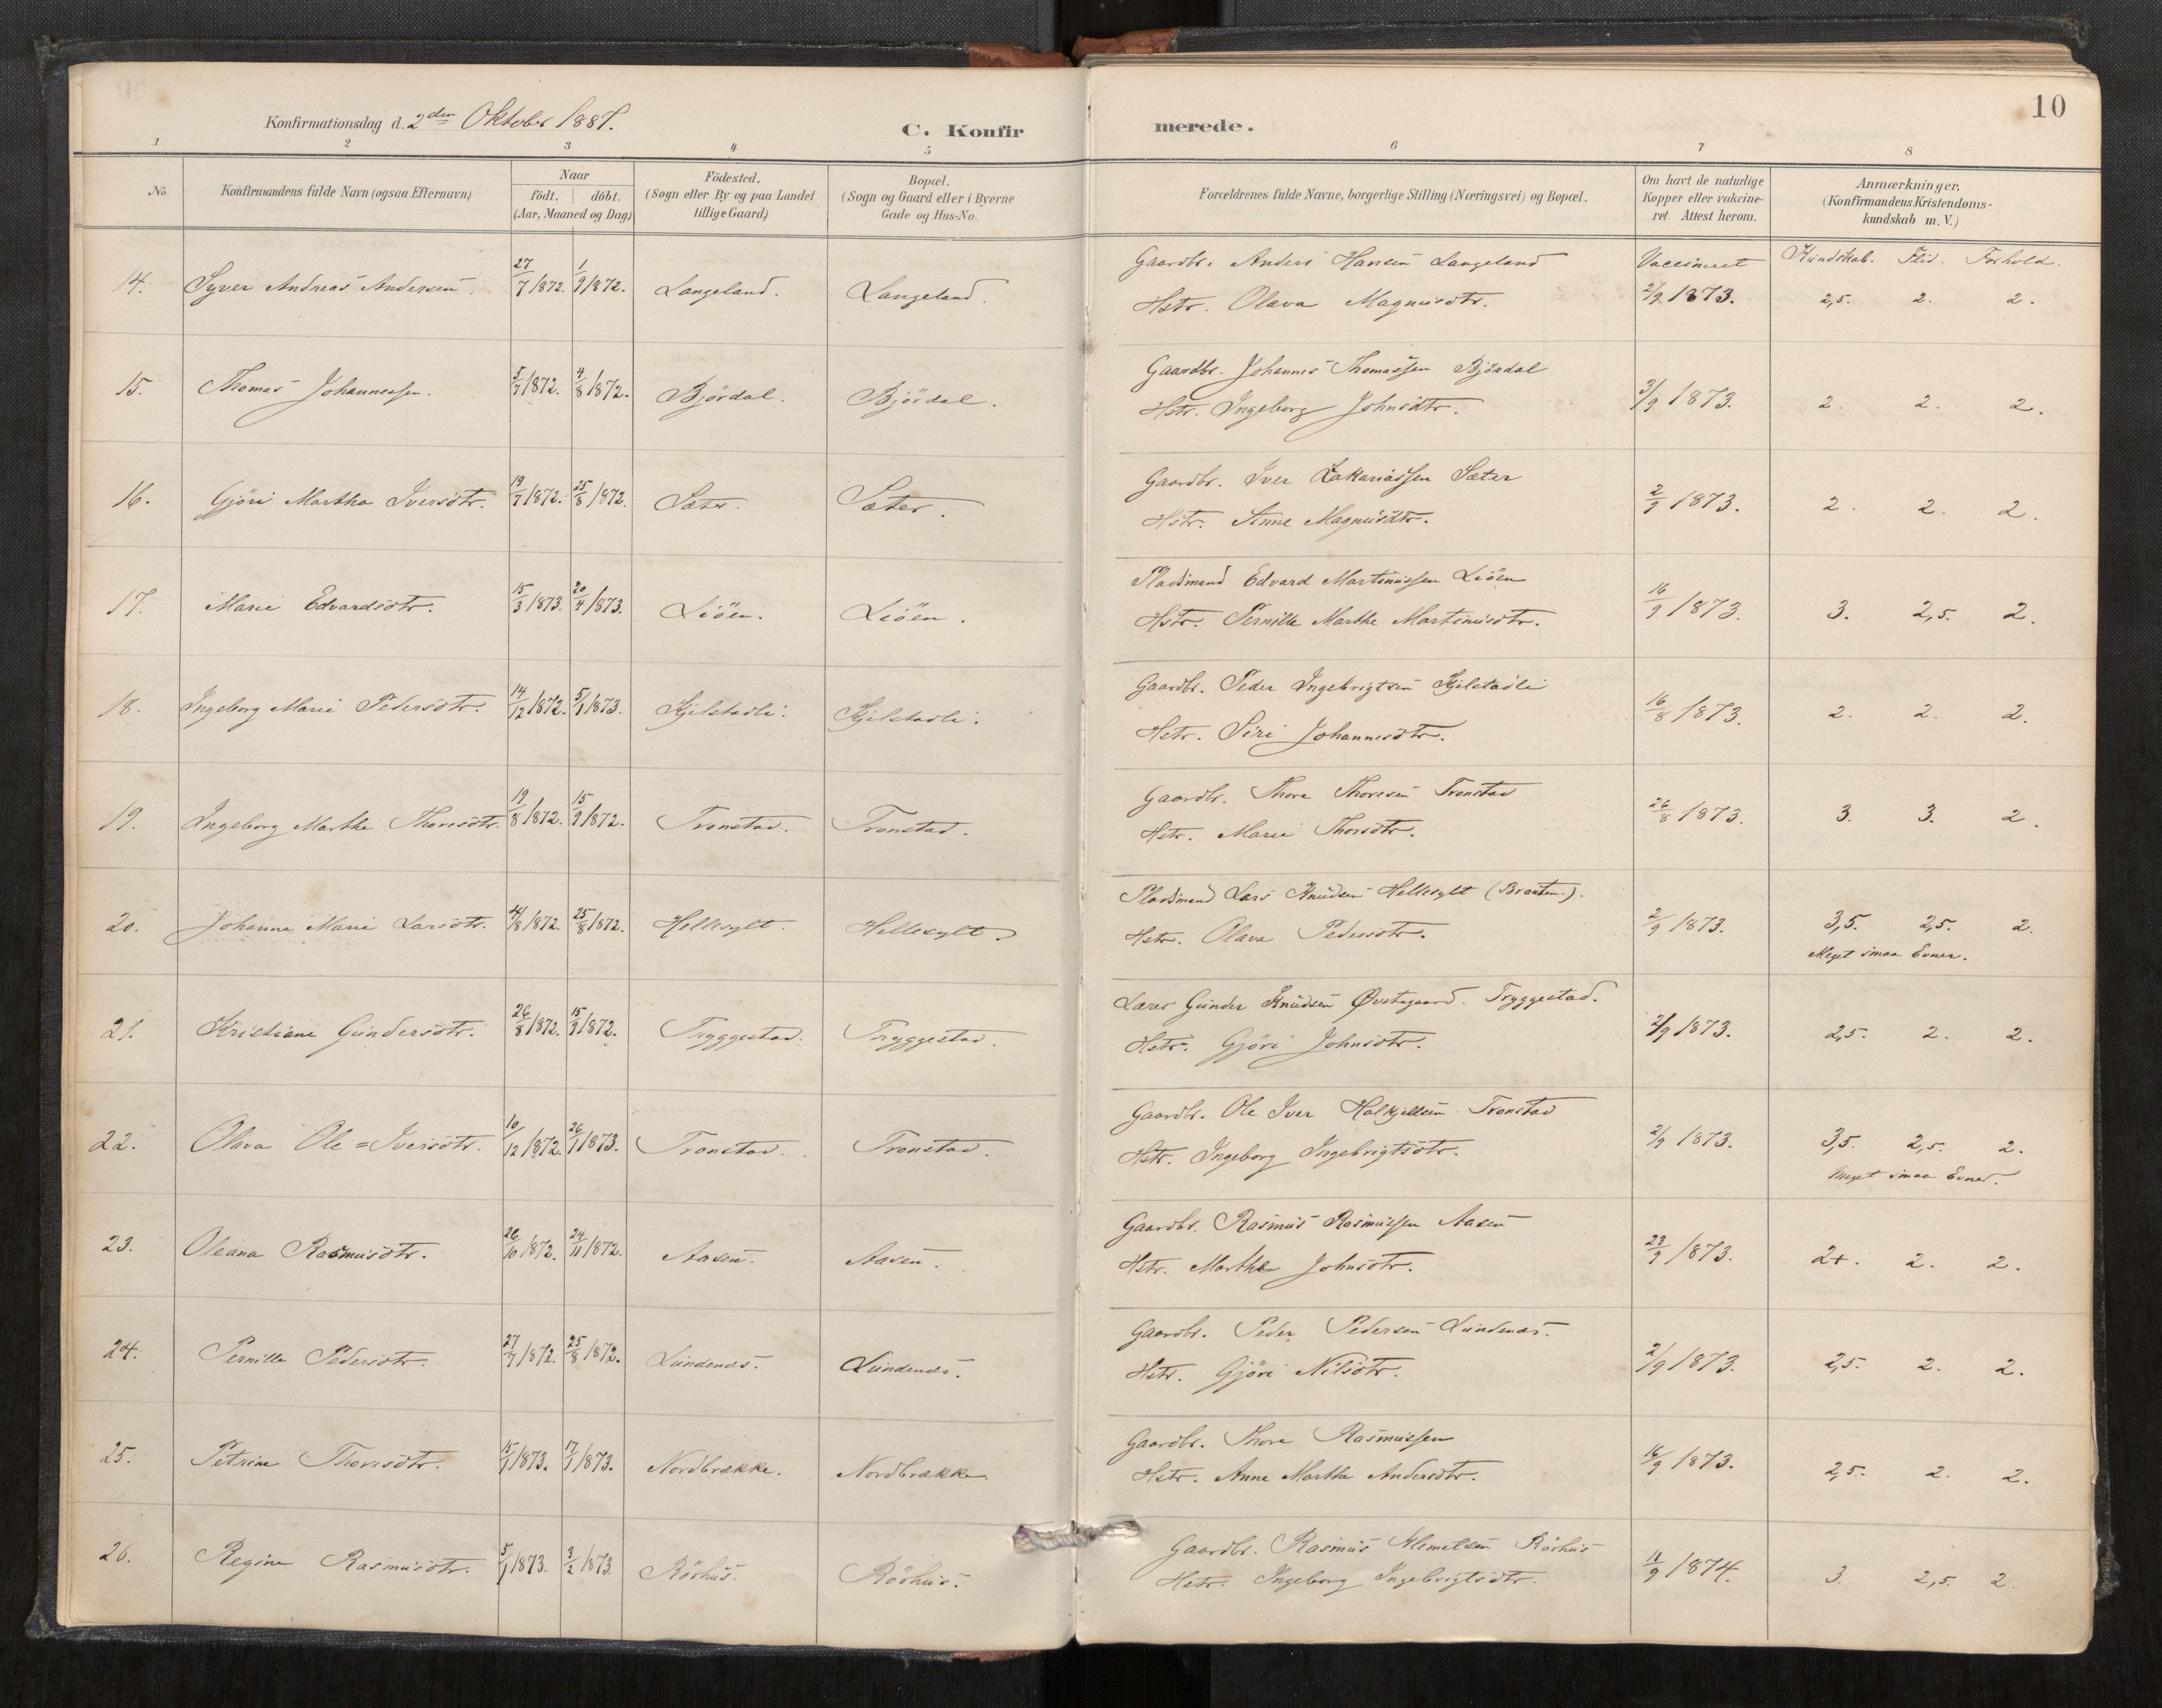 10
Konfirmationsdag d. 2den Oktober 1887.
C. Konfirmerede.
1 2 3 4 5 6 7 8
No. Konfirmandens fulde Navn (ogsaa Efternavn) Naar födt. döbt. (Aar, Maaned og Dag.) Födested. (Sogn eller By og paa Landet tillige Gaard.) Bopæl. (Sogn og Gaard eller i Byerne Gade og Hus-No. Forældrenes fulde Navne, borgerlige Stilling (Næringsvei) og Bopæl. Om havt de naturlige Kopper eller vakcineret. Attest herom. Anmærkninger, (Konfirmandens Kristendomskundskab m. V.)
Vaccineret Kundskab. Flid. Forhold.
14. Syver Andreas Andersen. 27/7 1872. 1/9 1872. Langeland. Langeland. Gaardbr. Anders Hansen Langeland
Hstr. Olava Magnusdtr. 2/9 1873. 2,5. 2. 2.
15. Thomas Johannessen. 5/7 1872. 4/8 1872. Björdal. Björdal. Gaardbr. Johannes Thomassen Björdal
Hstr. Ingeborg Johnsdtr. 3/9 1873. 2. 2. 2.
16. Gjöri Martha Iversdtr. 19/7 1872. 25/8 1872. Sæter. Sæter. Gaardbr. Iver Zakariassen Sæter
Hstr. Anne Magnusdtr. 2/9 1873. 2. 2. 2.
17. Marie Edvardsdtr. 15/3 1873. 20/4 1873. Liöen. Liöen. Pladsmand Edvard Martinussen Liöen
Hstr. Pernille Marthe Martinusdtr. 16/9 1873. 3. 2,5. 2.
18. Ingeborg Marie Pedersdtr. 14/12 1872. 5/1 1873. Kjelstadli. Kjelstadli. Gaardbr. Peder Ingebrigtsen Kjelstadli
Hstr. Siri Johannesdtr. 16/8 1873. 2. 2. 2.
19. Ingeborg Marthe Thoresdtr. 19/8 1872. 15/9 1872. Tronstad. Tronstad. Gaardbr. Thore Thoresen Tronstad
Hstr. Marie Thorsdtr. 26/8 1873. 3. 3. 2.
20. Johanne Marie Larsdtr. 4/8 1872. 25/8 1872. Hellesylt. Hellesylt. Pladsmand Lars Knudsen Hellesylt (Braaten.).
Hstr. Olava Pedersdtr. 2/9 1873. 3,5. 2,5. 2.
Meget smaa Evner.
21. Kristiane Gundersdtr. 26/8 1872. 15/9 1872. Tryggestad. Tryggestad. Lærer Gunder Knudsen Øvstegaard. Tryggestad.
Hstr. Gjöri Johnsdtr. 2/9 1873. 2,5. 2. 2.
22. Olava Ole=Iversdtr. 10/12 1872. 26/1 1873. Tronstad. Tronstad. Gaardbr. Ole Iver Halkjelsen Tronstad
Hstr. Ingeborg Ingebrigtsdtr. 2/9 1873. 3,5. 2,5. 2.
Meget smaa Evner.
23. Oleana Rasmusdtr. 26/10 1872. 24/11 1872. Aasen. Aasen. Gaardbr. Rasmus Rasmussen Aasen
Hstr. Marthe Johnsdtr. 23/9 1873. 2+. 2. 2.
24. Pernille Pedersdtr. 27/7 1872. 25/8 1872. Lundenæs. Lundenæs. Gaardbr. Peder Pedersen Lundenæs.
Hstr. Gjöri Nilsdtr. 2/9 1873. 2,5. 2. 2.
25. Petrine Thoresdtr. 15/1 1873. 17/1 1873. Nordbrække. Nordbrække. Gaardbr. Thore Rasmussen
Hstr. Anne Marthe Andersdtr. 16/9 1873. 2,5. 2. 2.
26. Regine Rasmusdtr. 5/1 1873. 3/2 1873. Rörhus. Rörhus. Gaardbr. Rasmus Klemetsen Rörhus
Hstr. Ingeborg Ingebrigtsdtr. 11/9 1874. 3. 2,5. 2.